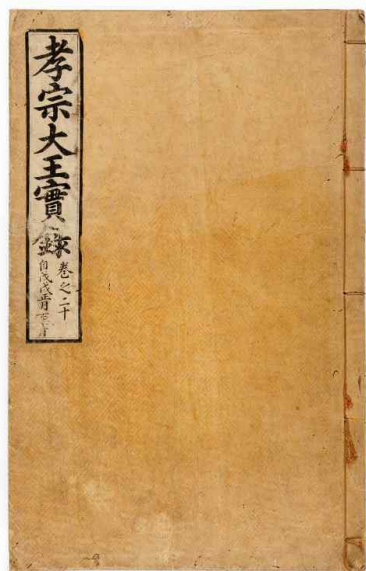 孝宗大王實錄
卷之二十
自戊戌正月